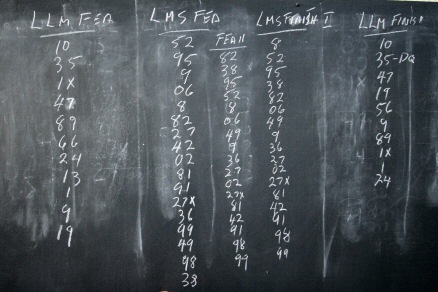 LLM FED
10
35
1X
47
89
66
24
13
1
9
19
LMS FED
52
95
9
06
8
82
27
42
02
81
91
27X
36
99
49
98
38
82
38
95
52
8
06
49
9
36
27
02
27X
81
42
91
98
99
LMS FINISH I
8
52
95
38
82
06
49
9
36
27
02
27X
81
42
91
98
99
LLM FINISH
10
35-DQ
47
19
56
9
89
1X
1
24